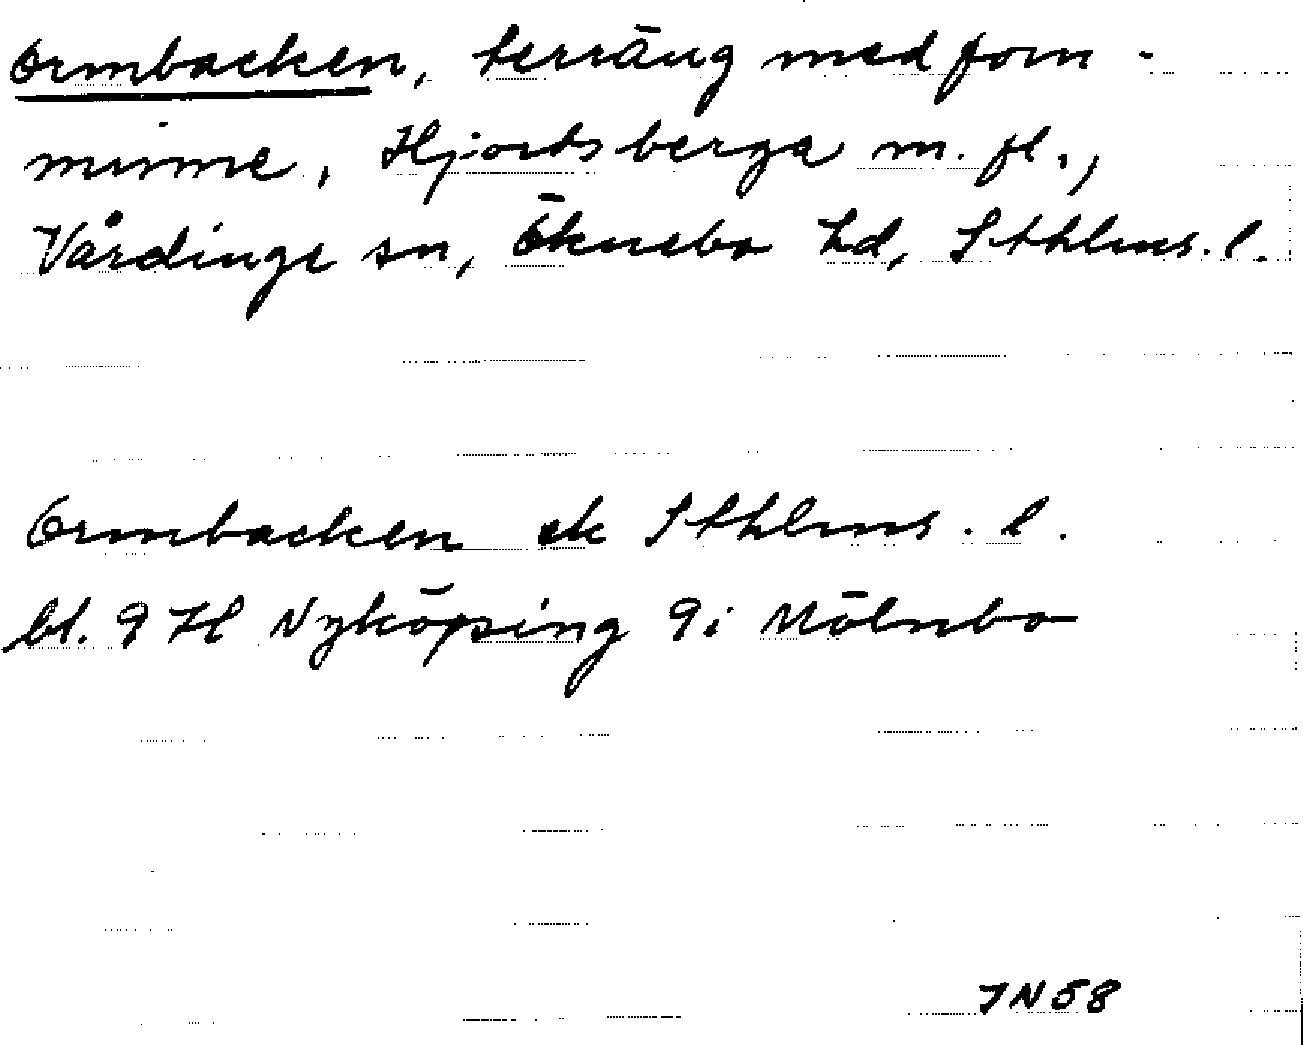 Ormbacken, terräng med forn-
minne, Hjortsberga m. fl.,
Vårdinge sn, Öknebo hd, Sthlms. l.
Ormbacken ek Sthlms. l.
bl. 9 H Nyköping 9i Mölnbo
JN 58